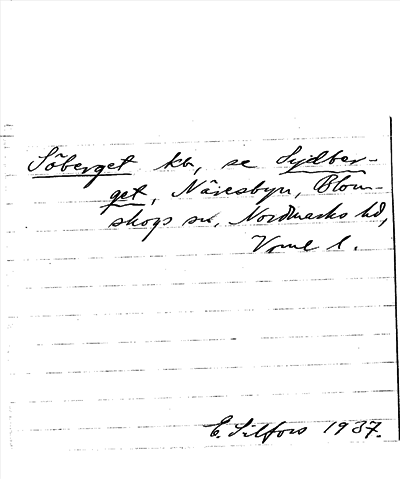 Söberget kn, se Sydber-
get, Näresbyn, Blom-
skogs sn, Nordmarks hd,
Verml l.
E. Silfors 1937.